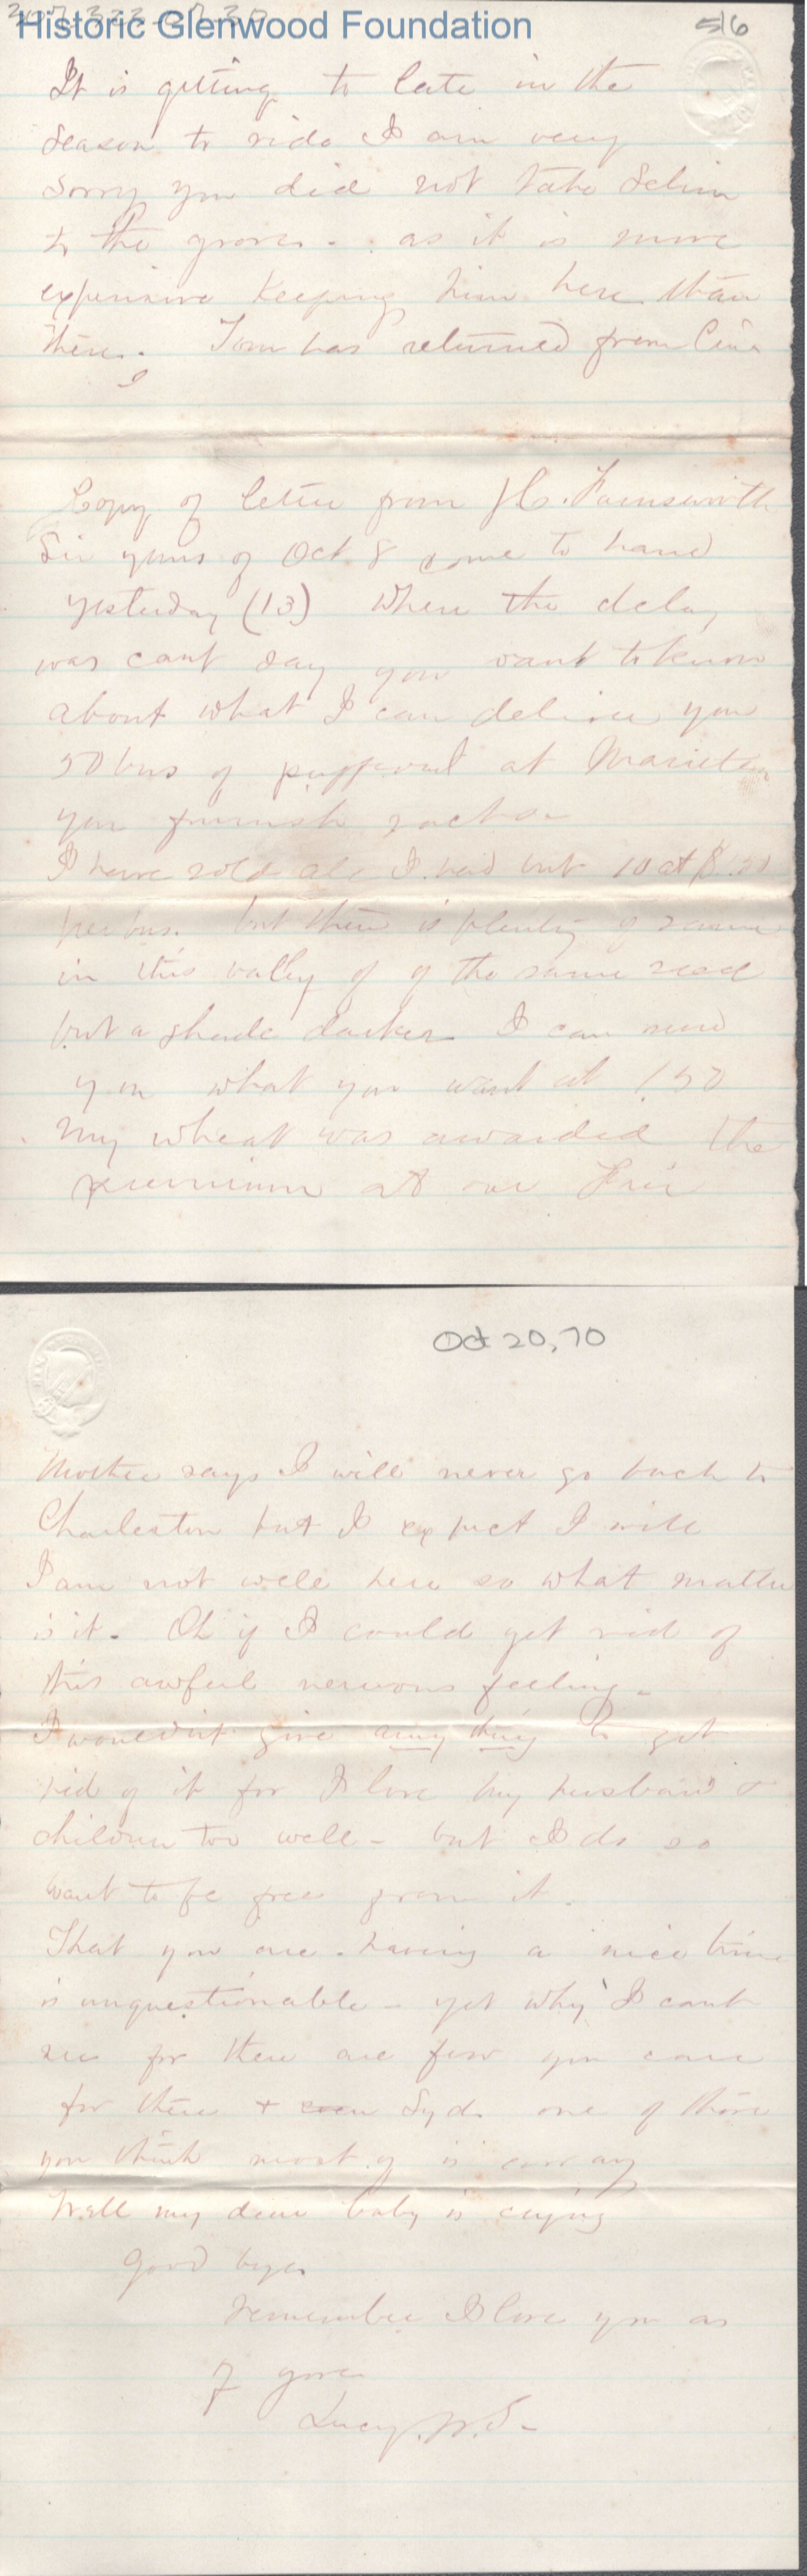 Historic Glenwood Foundation
516
It is getting to late in the
season to ride I am very
sorry you did not take Selim
to the groves - as it is more
expensive keeping him here than
there. Tom has returned from Cin
Copy of letter from J C. Farnsworth
Sir yours of Oct 8 come to hand
yesterday (13) Where the delay
was cant say you want to know
about what I can deliver you
50 bus of at Marietta
you furnish sacks
I have sold all I had but 10 at $1.50
per bus. but there is plenty of same
in this valley of of the same seed
but a shade darker I can send
you what you want at 150
My wheat was awarded the
premium at our Fair
Oct 20, 70
Mother says I will never go back to
Charleston but I expect I will
I am not well here so what matter
is it. Oh if I could get rid of
this awful nervous feeling -
I wouldn't give any thing to get
rid of it for I love my husband &
children too well - but I do so
want to be free from it.
That you are having a nice time
is unquestionable - yet why I cant
see for there are few you care
for there & even Syd. one of those
you think most of is away
Well my dear baby is crying
Good bye
remember I love you as
of yore
Lucy. W. S-